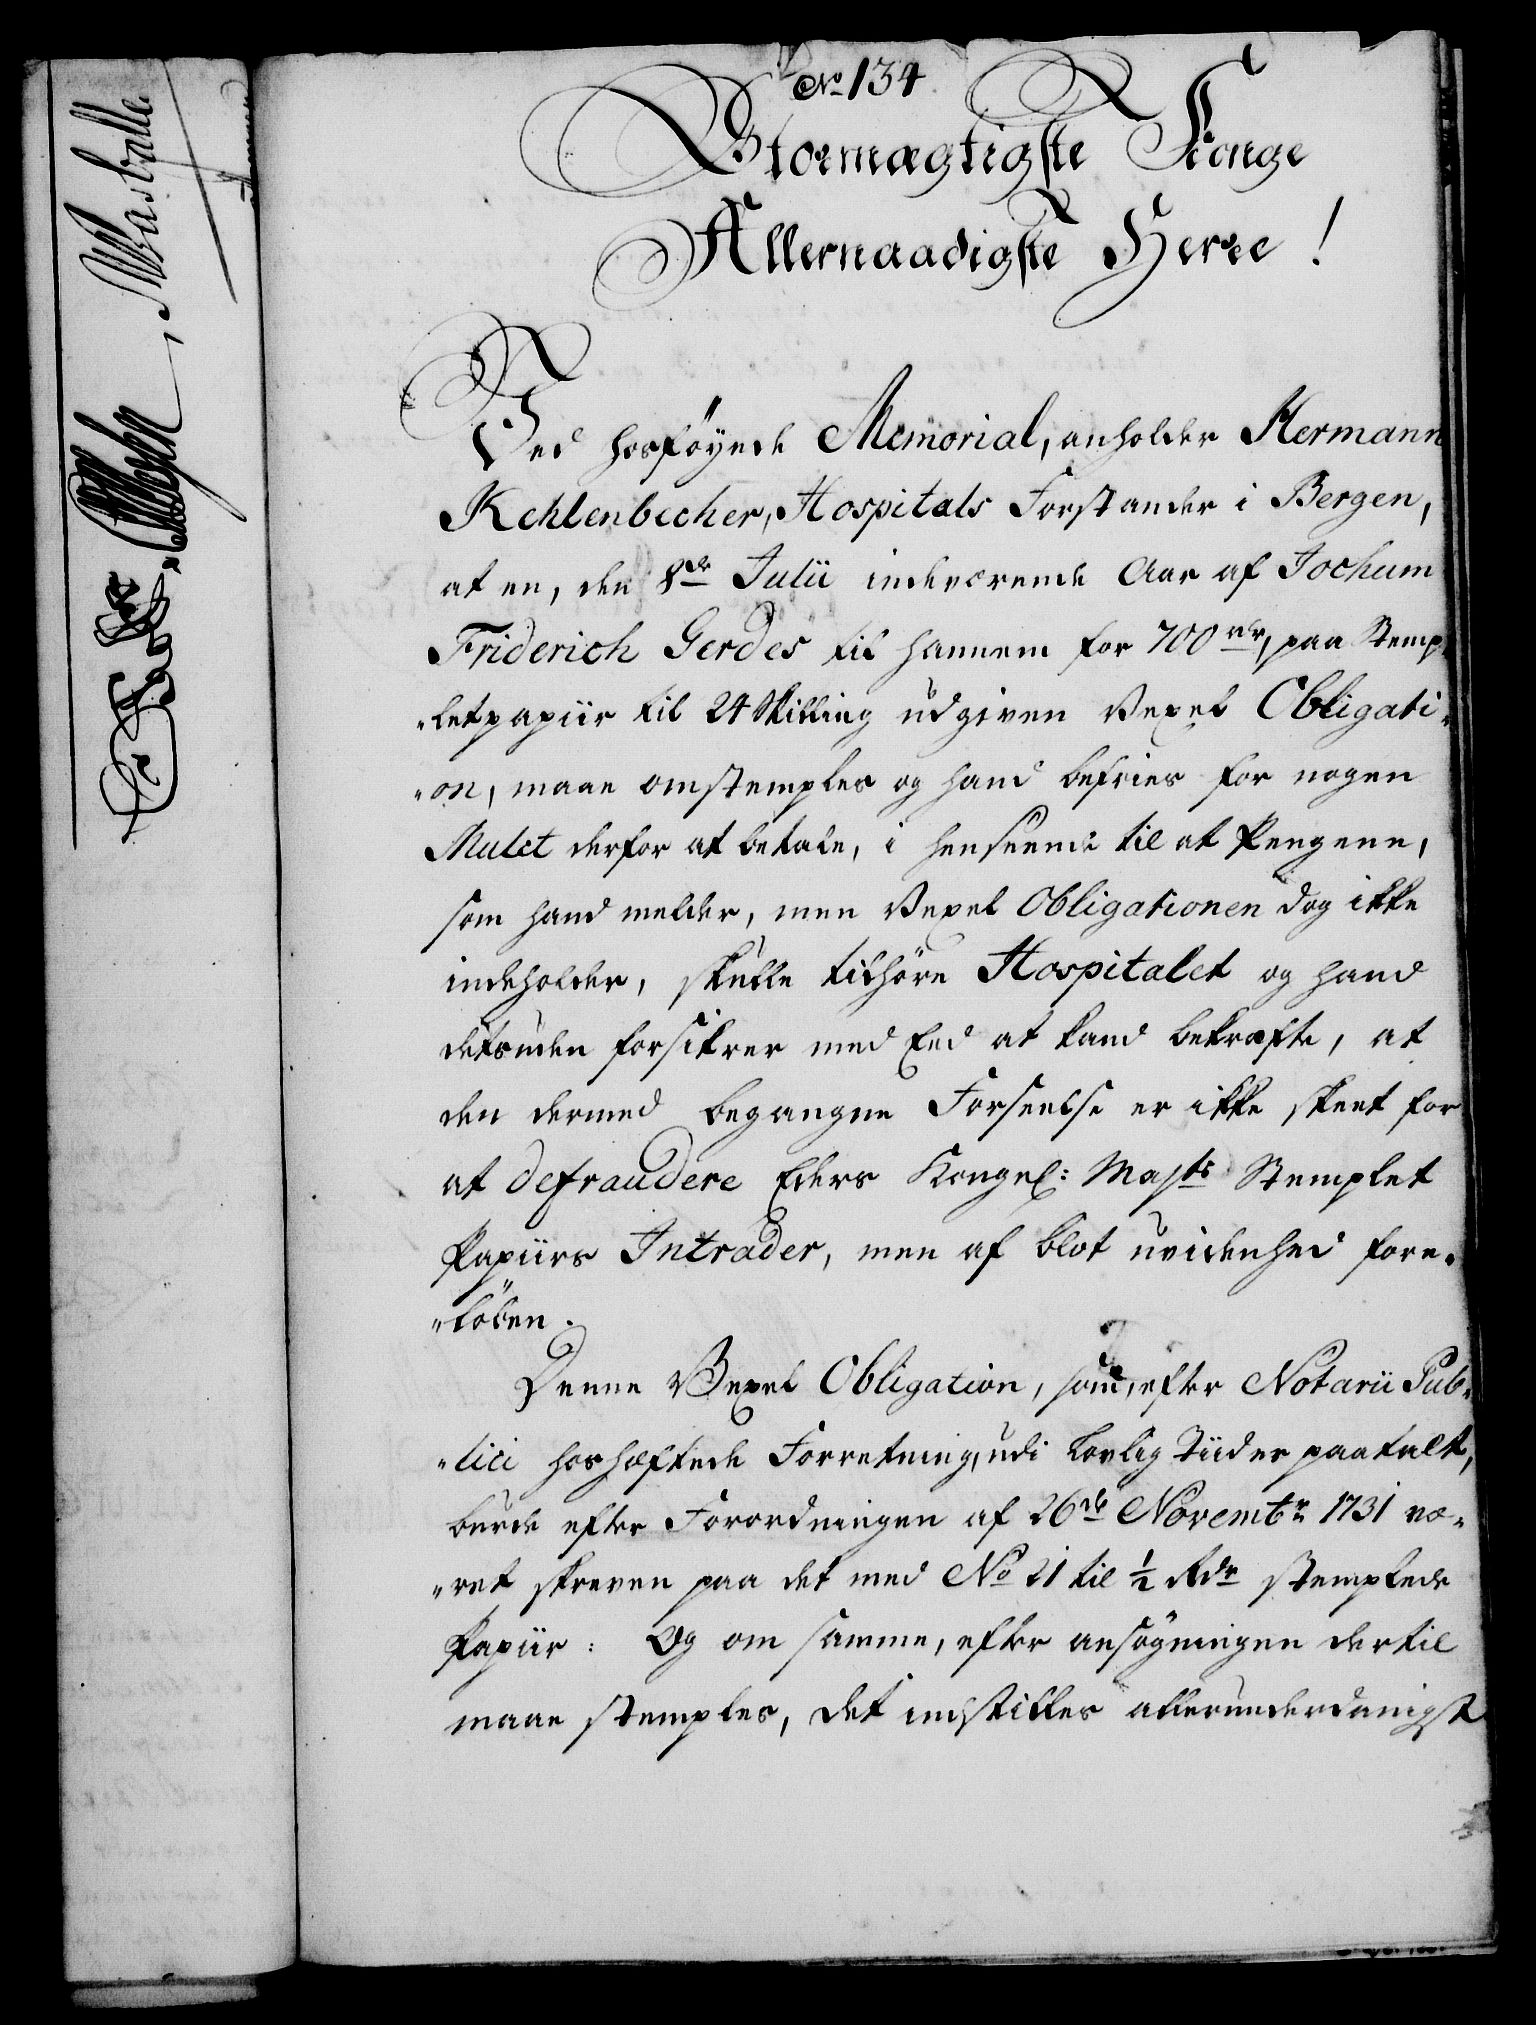 No 134
Stormægtigste Konge
Allernaadigste Herre!
Ved hosføyede Memorial, anholder Hermann
Kehlenbecher, Hospitals Forstander i Bergen,
at en, den 8de Julii indeværende Aar af Jochum
Friderich Gerdes til hannem for 700 rdr, paa Stemp„
„letpapiir til 24 Skilling udgiven Vexel Obligati„
„on, maae omstemples og hand befries for nogen
Mulct derfor at betale, i henseende til at Pengene,
som hand melder, men Vexel Obligationen dog ikke
indeholder, skulle tilhøre Hospitalet og hand
desuden forsikrer med Eed at kand bekræfte, at
den dermed begangne Forseelse er ikke skeet for
at defraudere Eders Kongel: Majts Stemplet
Papiirs Intrader, men af blot uvidenhed fore„
„løben.
Denne Vexel Obligation, som, efter Notarii Pub„
„lici hoshæftede Forretning, udi lovlig Tiider paatalt,
burde efter Forordningen af 26de Novembr 1731 væ„
„ret skreven paa det med No 21 til ½ Rdr stemplede
Papiir: Og om samme, efter ansøgningen dertil
maae stemples, det indstilles allerunderdanigst